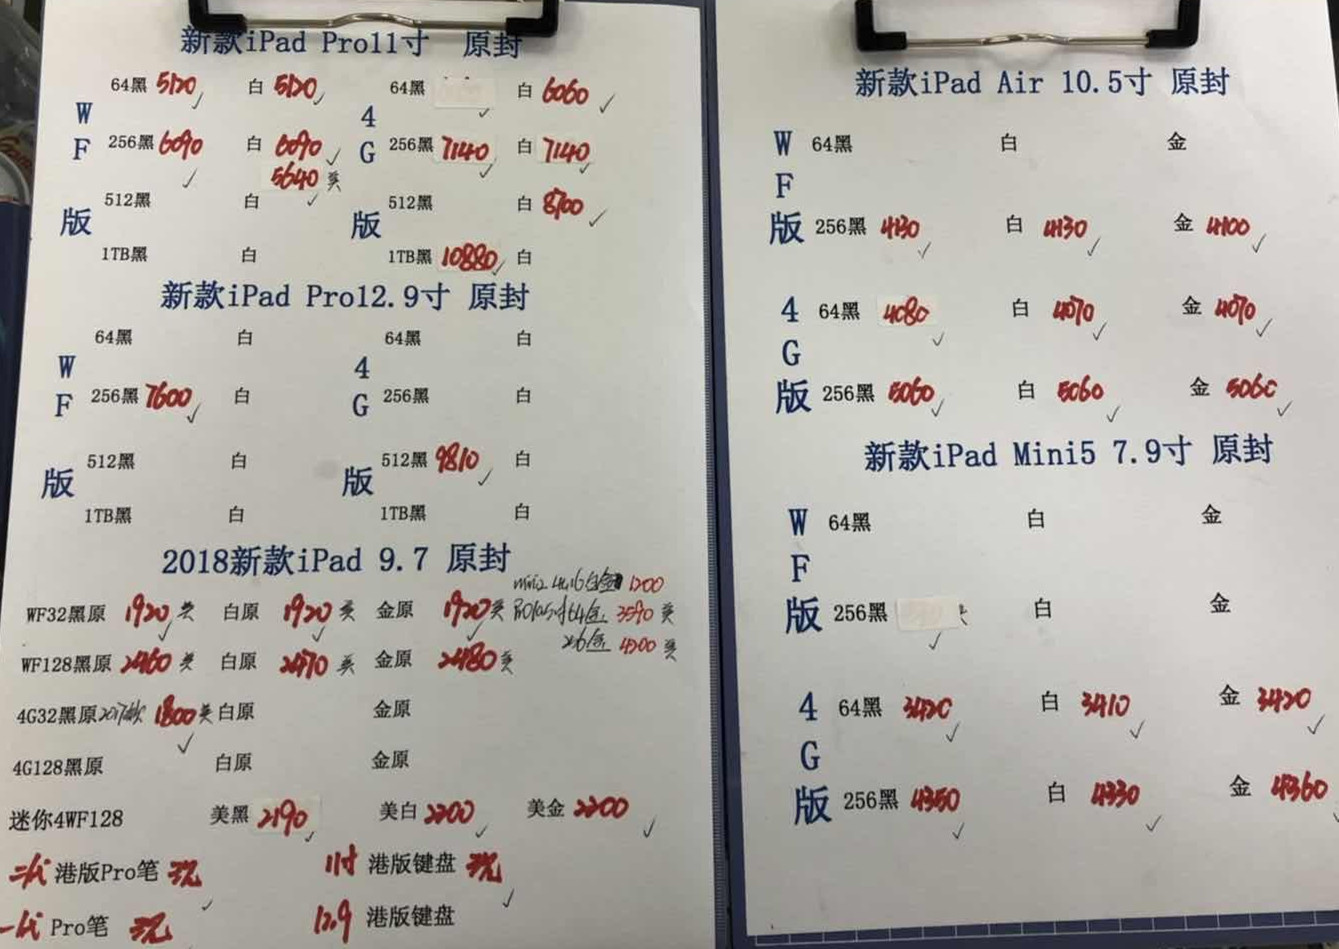 新款iPad Pro11寸 原封
64黑 5120 白 5120 64黑 白 6060
W 4
F 256黑 6090 白 6090 G 256黑 7140 白 7140
5640 美
版 512黑 白 版 512黑 白 8700
1TB黑 白 1TB黑 10880 白
新款iPad Pro12.9寸 原封
64黑 白 64黑 白
W 4
F 256黑 7600 白 G 256黑 白
版 512黑 白 版 512黑 9810 白
1TB黑 白 1TB黑 白
2018新款iPad 9.7 原封
mini2 4G 16白金 1200
WF32黑原 1920 美 白原 1920 美 金原 1920 美 3590 美
WF128黑原 2460 美 白原 2470 美 金原 2480 美 256金 4200 美
4G32黑原 2017款 1800 美 白原 金原
4G128黑原 白原 金原
迷你4WF128 美黑 2190 美白 2200 美金 2200
二代 港版Pro笔 11寸 港版键盘
一代 Pro笔 12.9 港版键盘
新款iPad Air 10.5寸 原封
W 64黑 白 金
F
版 256黑 4130 白 4130 金 4100
4 64黑 4080 白 4070 金 4070
G
版 256黑 5060 白 5060 金 5060
新款iPad Mini5 7.9寸 原封
W 64黑 白 金
F
版 256黑 白 金
4 64黑 3420 白 3410 金 3420
G
版 256黑 4350 白 4330 金 4360